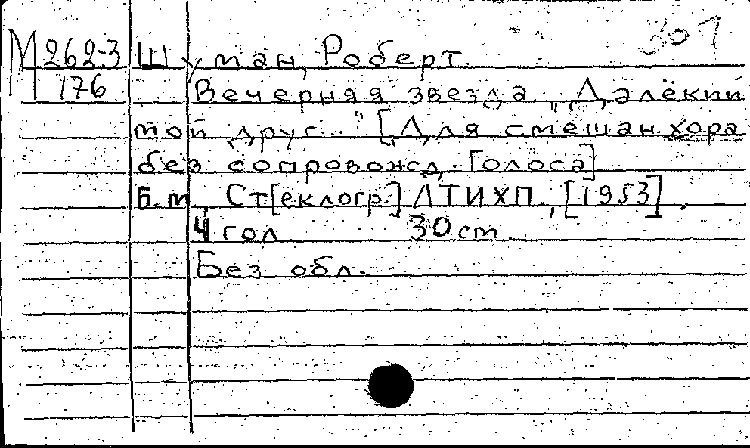 307
М 262-3 Шуман, Роберт.
176 Вечерняя звезда „Далёкий
мой друг..." [Для смешан. хора
без сопровожд. Голоса]
Б.м., Ст[еклогр.] ЛТИХП, [1953].
4 гол. 30 cm.
Без обл.